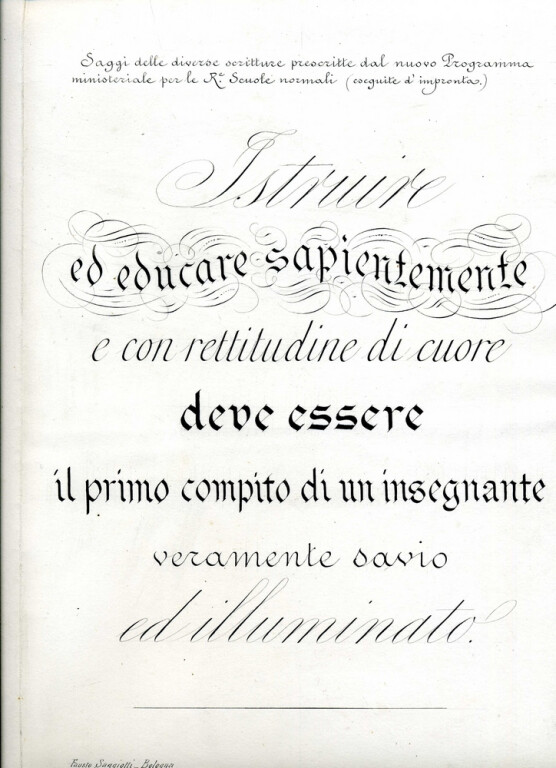 Saggi delle diverse scritture prescritte dal nuovo Programma
ministeriale per le Re Scuole normali (eseguite d'impronta.)
Istruire
ed educare sapientemente
e con rettitudine di cuore
deve essere
il primo compito di un insegnante
veramente savio
ed illuminato.
Fausto – Bologna